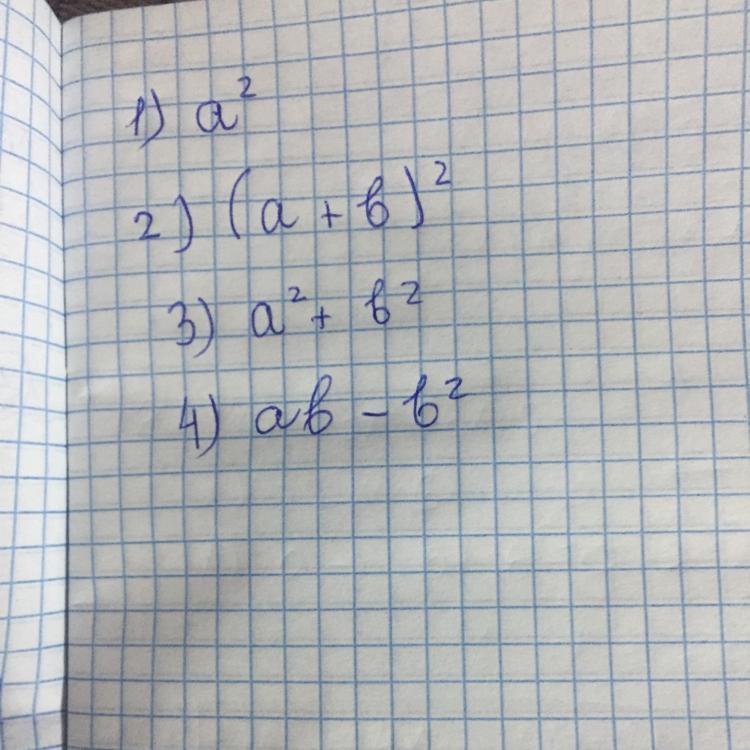 1) a²
2) (a + b)²
3) a² + b²
4) ab - b²